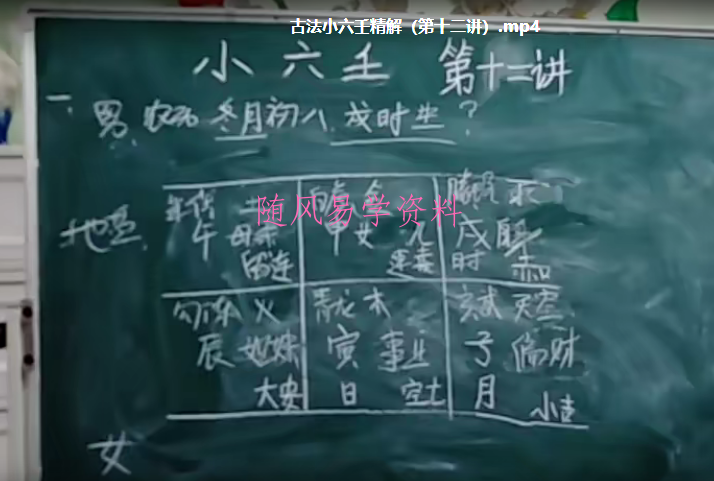 古法小六壬精解（第十二讲）.mp4
小六壬 第十二讲
一、男 农历 冬月初八 戌时生？
随风易学资料
地盘
土 白虎 金 朱
午 母亲 申 女 儿 戌
留连 速喜 时 赤口
勾陈 火 青龙 木 玄武 天空
辰 姐妹 寅 事业 子 偏财
大安 日 空亡 月 小吉
女